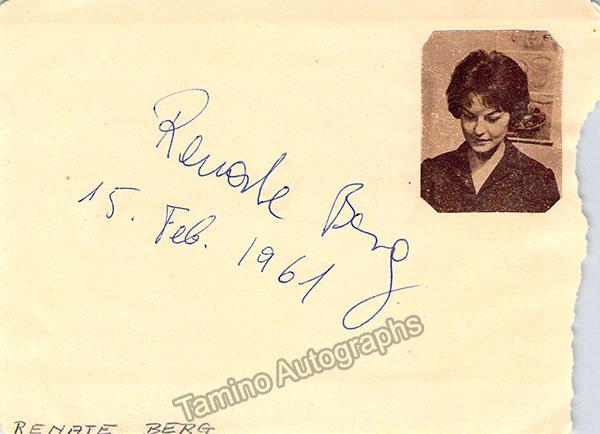 Renate Berg
15. Feb. 1961
Tamino Autographs
RENATE BERG